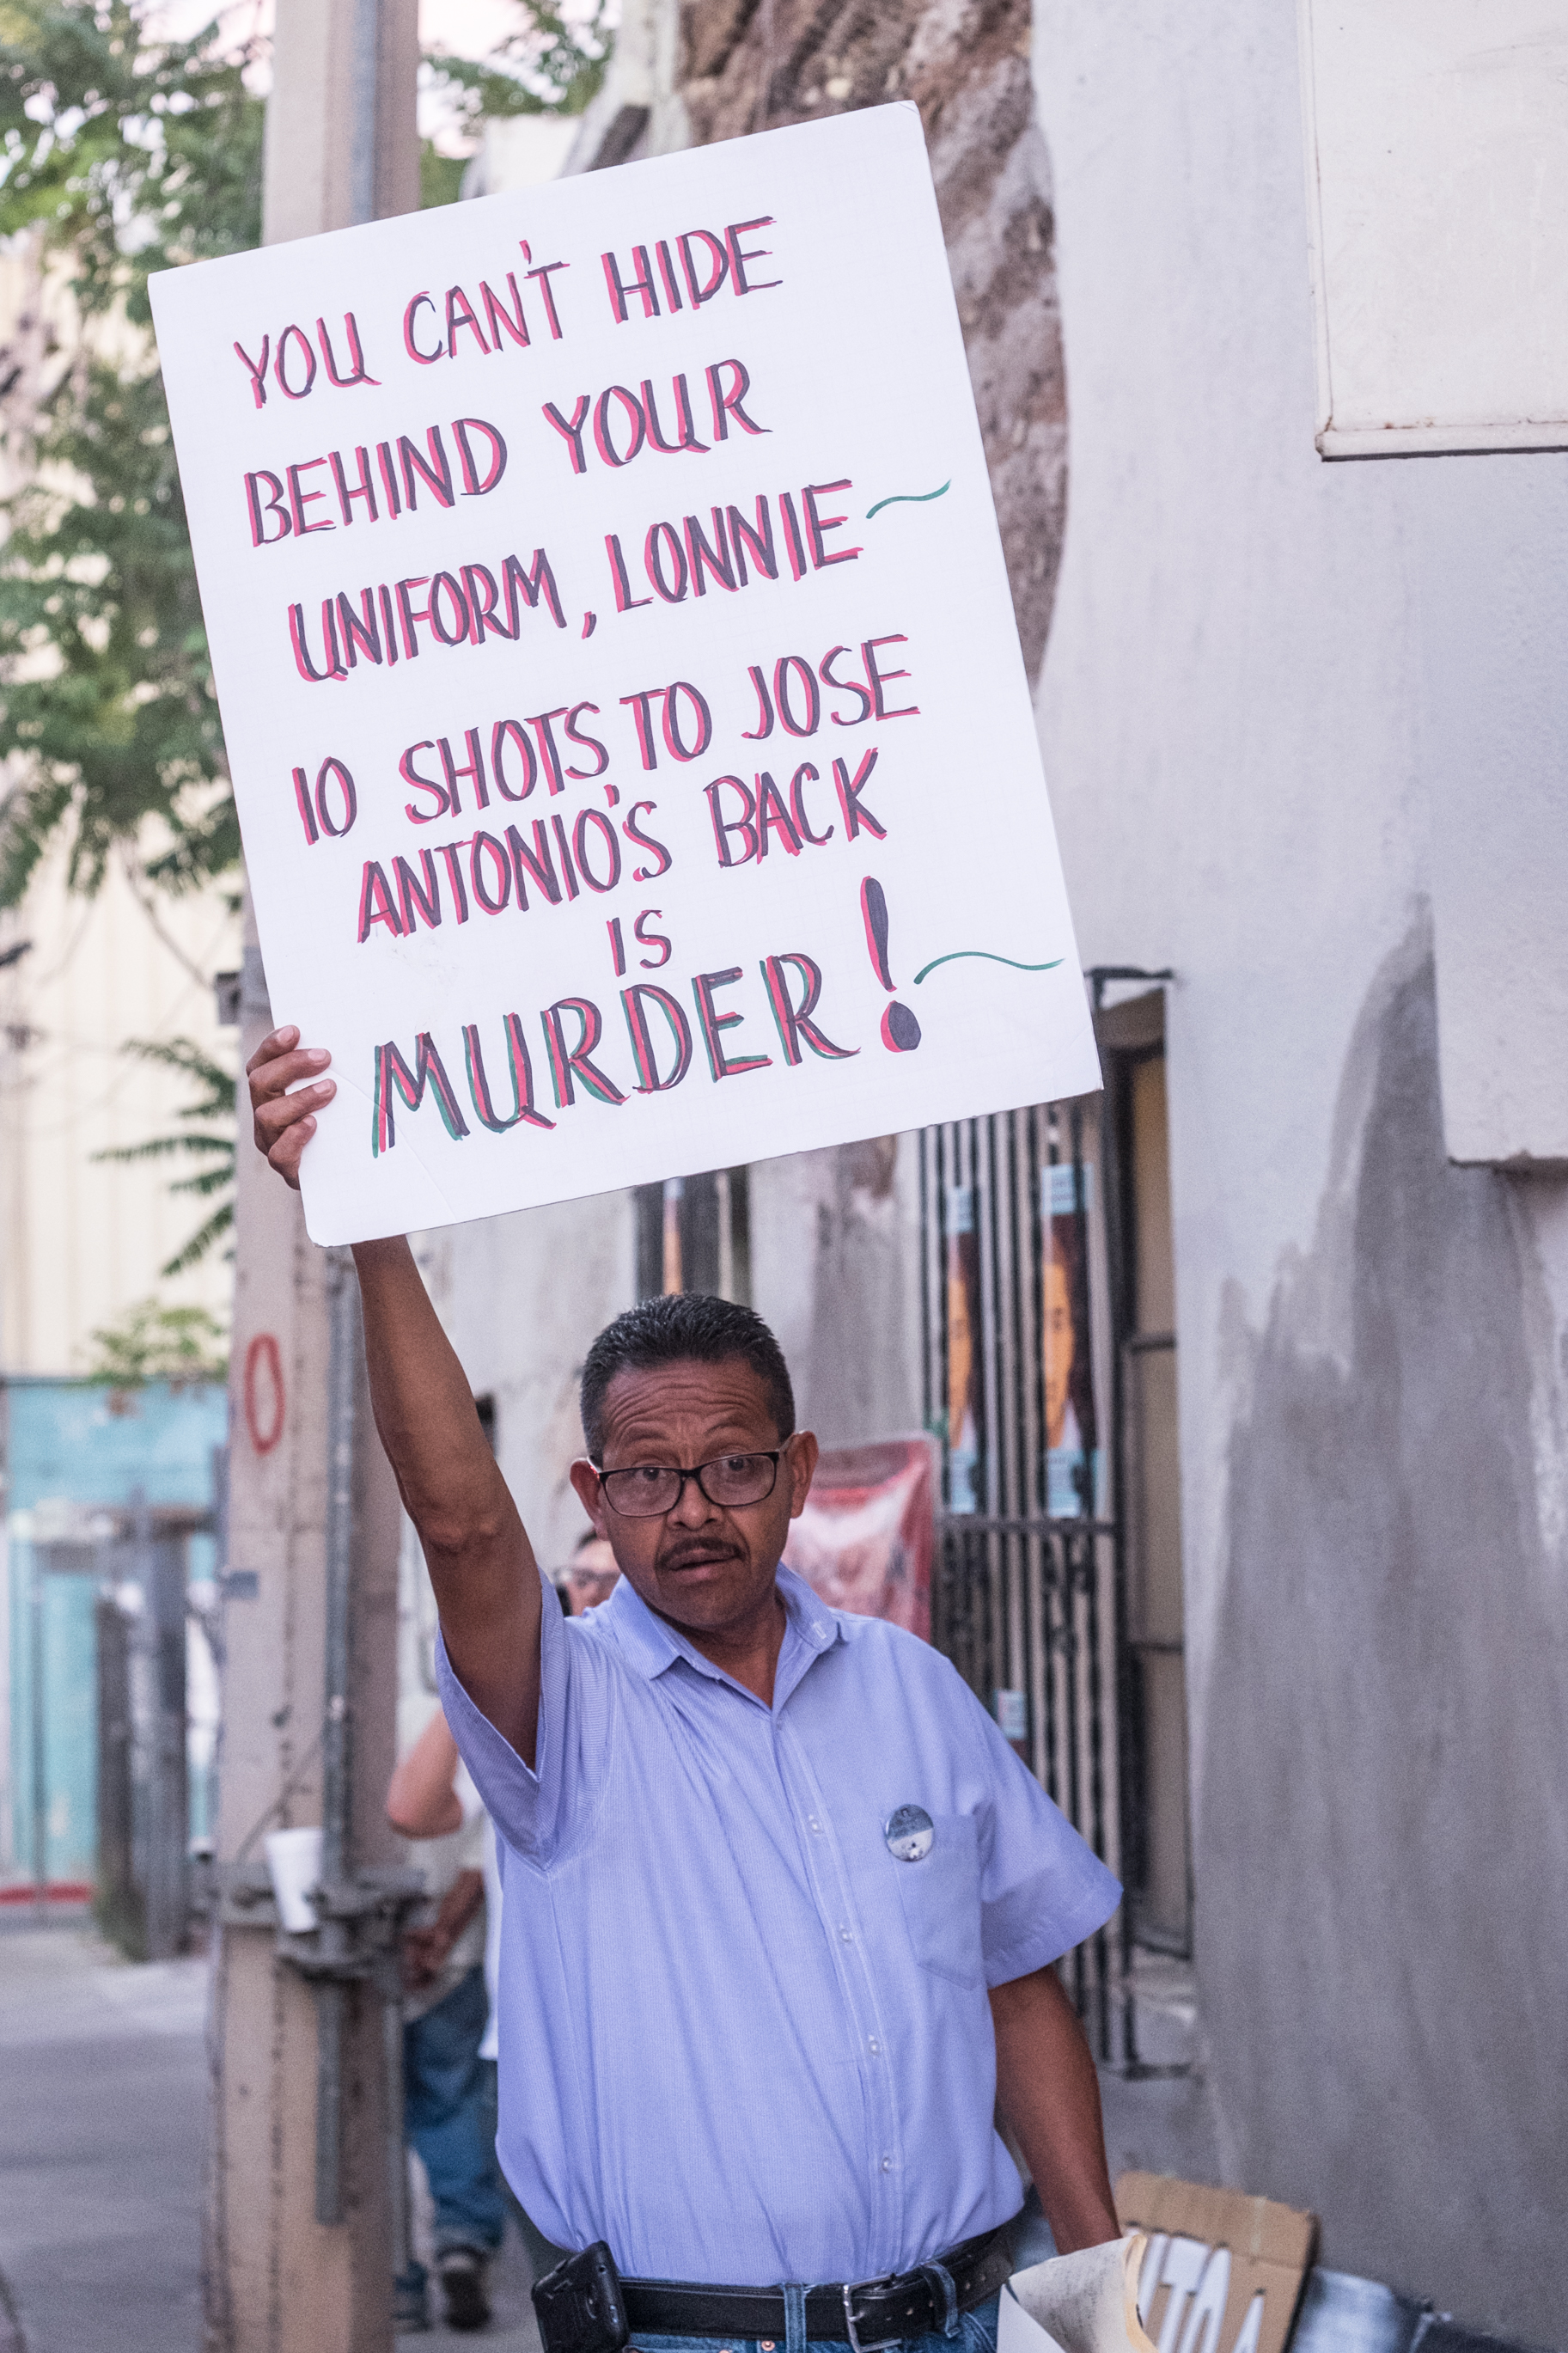 YOU CAN'T HIDE
BEHIND YOUR
UNIFORM, LONNIE~
10 SHOTS TO JOSE
ANTONIO'S BACK
IS
MURDER!~